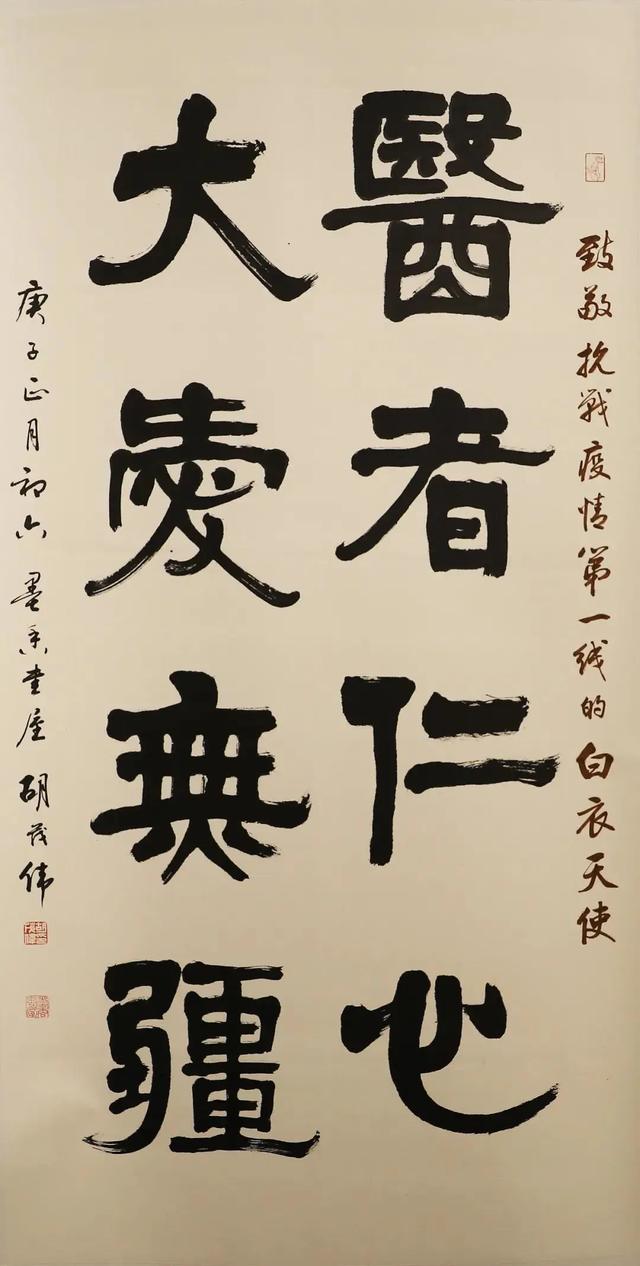 致敬抗戰疫情第一线的白衣天使
醫者仁心
大愛無疆
庚子正月初六 墨香书屋 胡茂伟